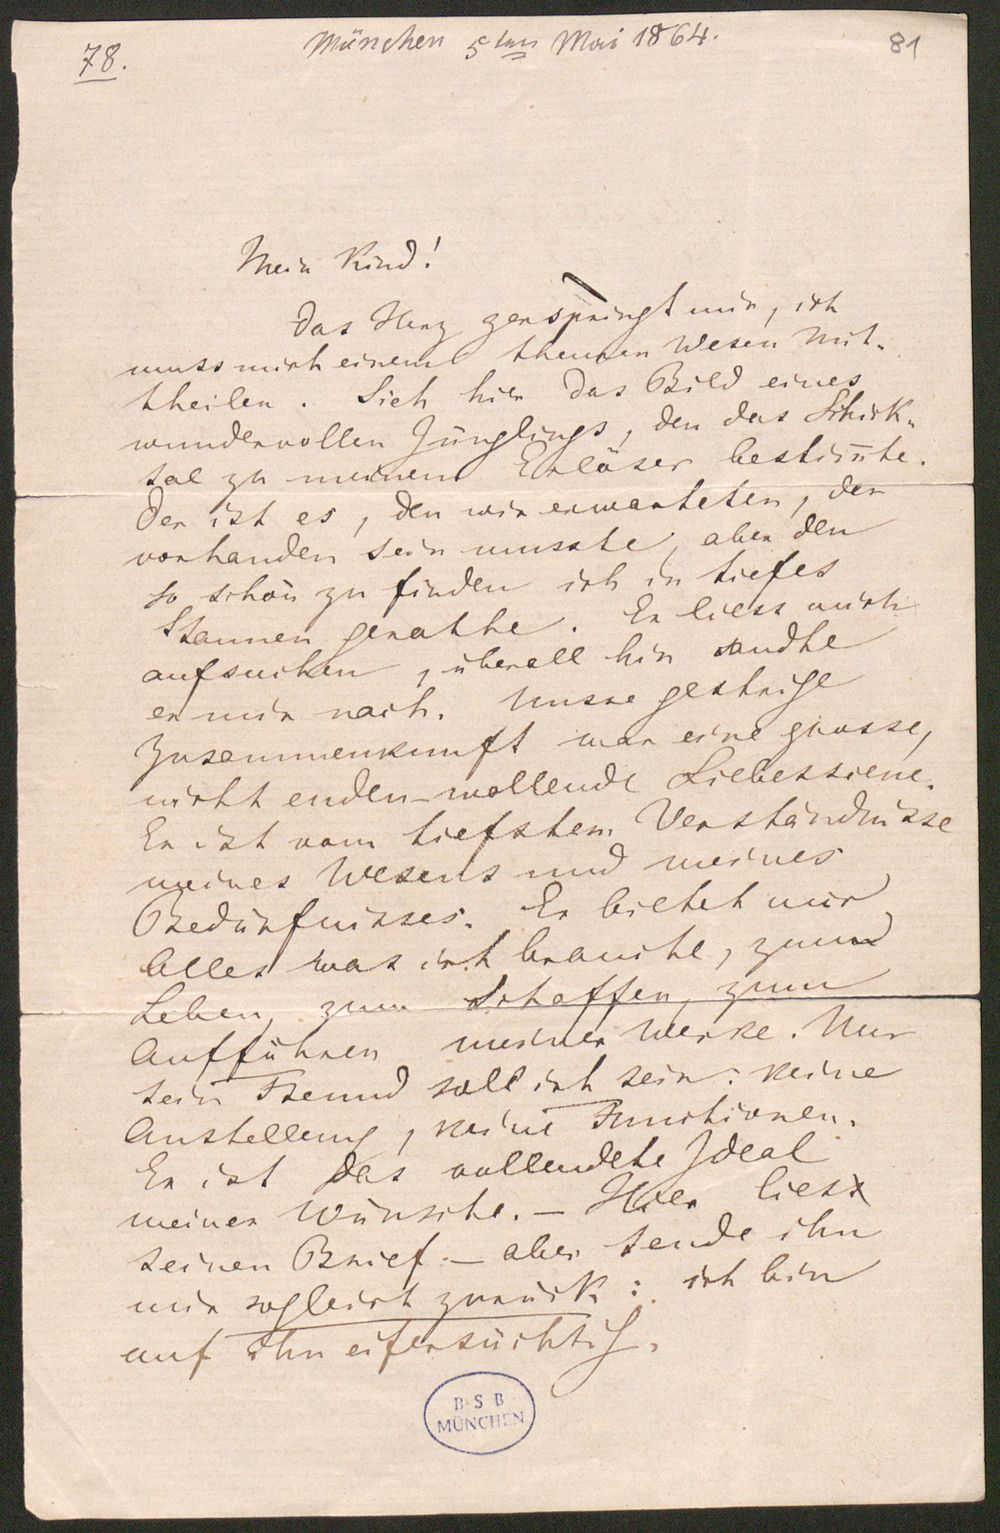 78.
München 5ten Mai 1864.
81
Mein Kind!
Das Herz zerspringt mir, ich
muss mich einem theuren Wesen mit-
theilen. Sieh hier das Bild eines
wundervollen Jünglings, den das Schick-
sal zu meinem Erlöser bestim̅te.
Der ist es, den wir erwarteten, der
vorhanden sein musste, aber den
so schön zu finden ich in tiefes
Staunen gerathe. Er liess mich
aufsuchen, überall hin sandte
er mir nach. Unsre gestrige
Zusammenkunft war eine grosse,
nicht enden-wollende Liebesscene.
Er ist vom tiefsten Verständnisse
meines Wesens und meines
Bedürfnisses. Er bietet mir
Alles was ich brauche, zum
Leben, zum Schaffen, zum
Aufführen meiner Werke. Nur
sein Freund soll ich sein: keine
Anstellung, keine Functionen.
Er ist das vollendete Ideal
meiner Wünsche. — Hier lies
seinen Brief — aber sende ihn
mir sogleich zurück: ich bin
auf ihn eifersüchtig.
BSB
MÜNCHEN